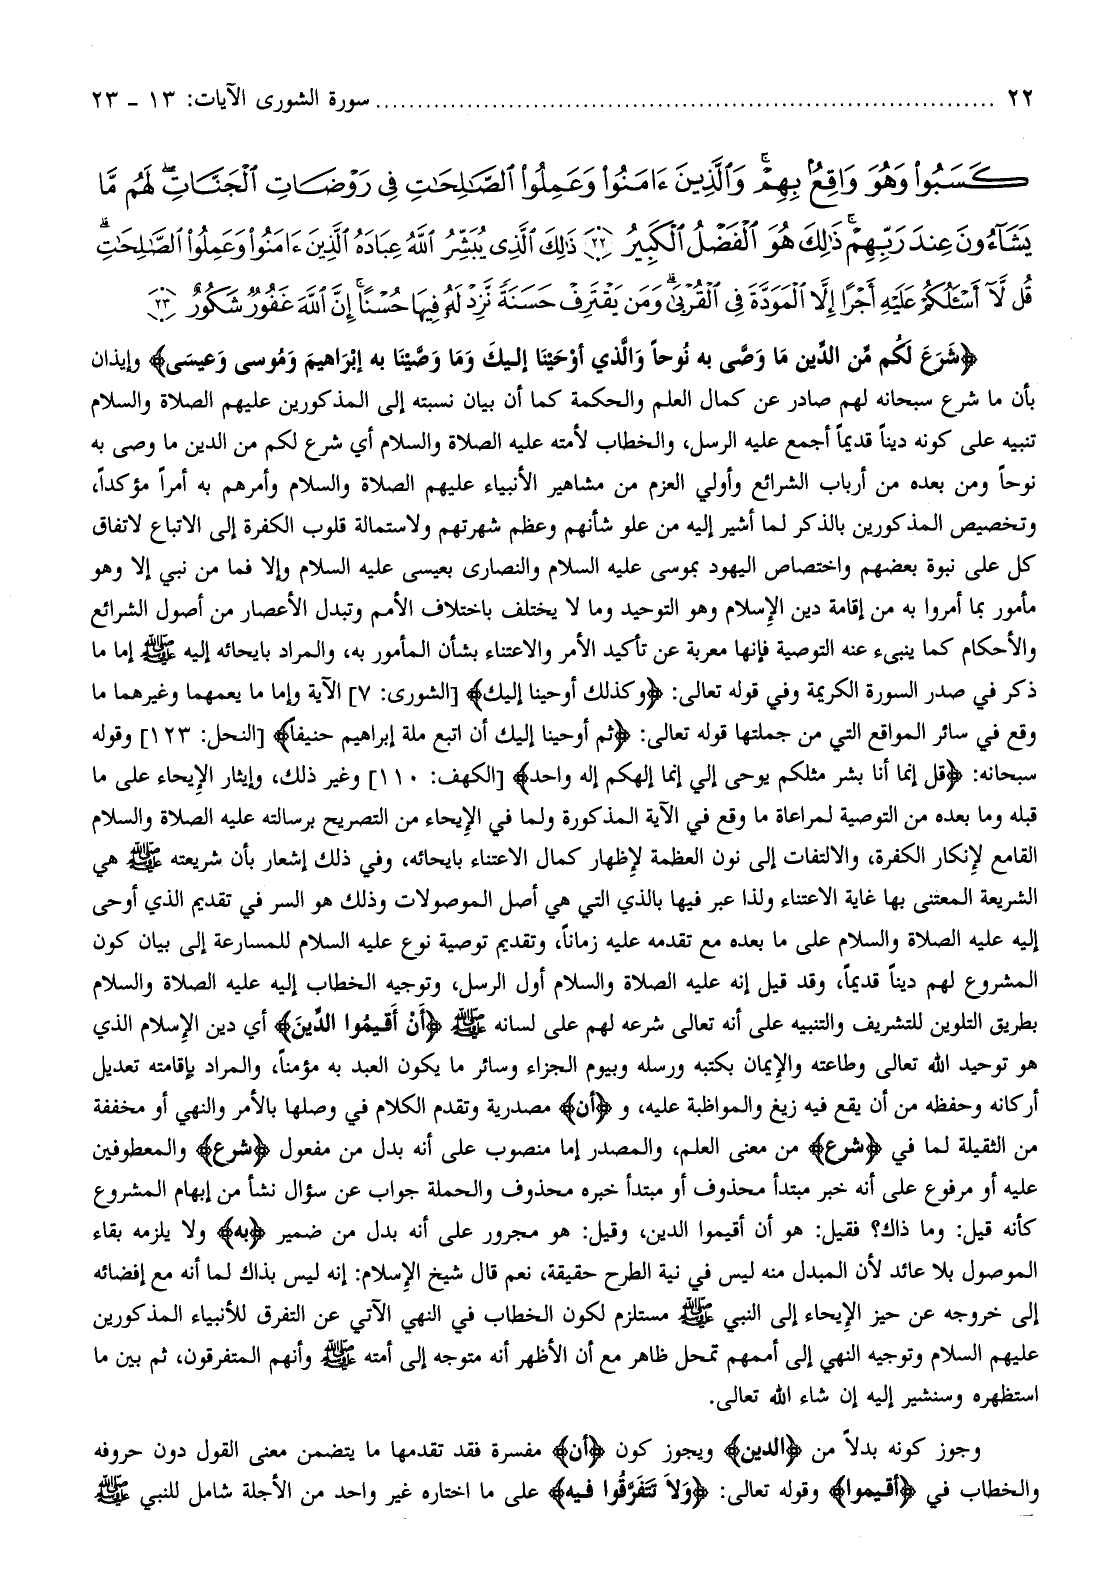 ٢٢ ........................................................................ سورة الشورى الآيات: ١٣ - ٢٣
كَسَبُوا۟ وَهُوَ وَاقِعٌۢ بِهِمْ ۗ وَٱلَّذِينَ ءَامَنُوا۟ وَعَمِلُوا۟ ٱلصَّـٰلِحَـٰتِ فِى رَوْضَاتِ ٱلْجَنَّاتِ ۖ لَهُم مَّا
يَشَآءُونَ عِندَ رَبِّهِمْ ۚ ذَٰلِكَ هُوَ ٱلْفَضْلُ ٱلْكَبِيرُ ﴿٢٢﴾ ذَٰلِكَ ٱلَّذِى يُبَشِّرُ ٱللَّهُ عِبَادَهُ ٱلَّذِينَ ءَامَنُوا۟ وَعَمِلُوا۟ ٱلصَّـٰلِحَـٰتِ ۗ
قُل لَّآ أَسْـَٔلُكُمْ عَلَيْهِ أَجْرًا إِلَّا ٱلْمَوَدَّةَ فِى ٱلْقُرْبَىٰ ۗ وَمَن يَقْتَرِفْ حَسَنَةً نَّزِدْ لَهُۥ فِيهَا حُسْنًا ۚ إِنَّ ٱللَّهَ غَفُورٌ شَكُورٌ ﴿٢٣﴾
﴿شَرَعَ لَكُم مِّن الدِّين مَا وَصَّى به نُوحاً وَالَّذي أوْحَيْنَا إليكَ وَمَا وَصَّيْنَا به إبْرَاهيمَ وَمُوسى وَعيسَى﴾ وإيذان
بأن ما شرع سبحانه لهم صادر عن كمال العلم والحكمة كما أن بيان نسبته إلى المذكورين عليهم الصلاة والسلام
تنبيه على كونه ديناً قديماً أجمع عليه الرسل، والخطاب لأمته عليه الصلاة والسلام أي شرع لكم من الدين ما وصى به
نوحاً ومن بعده من أرباب الشرائع وأولي العزم من مشاهير الأنبياء عليهم الصلاة والسلام وأمرهم به أمراً مؤكداً،
وتخصيص المذكورين بالذكر لما أشير إليه من علو شأنهم وعظم شهرتهم ولاستمالة قلوب الكفرة إلى الاتباع لاتفاق
كل على نبوة بعضهم واختصاص اليهود بموسى عليه السلام والنصارى بعيسى عليه السلام وإلا فما من نبي إلا وهو
مأمور بما أمروا به من إقامة دين الإِسلام وهو التوحيد وما لا يختلف باختلاف الأمم وتبدل الأعصار من أصول الشرائع
والأحكام كما ينبىء عنه التوصية فإنها معربة عن تأكيد الأمر والاعتناء بشأن المأمور به، والمراد بايحائه إليه ﷺ إما ما
ذكر في صدر السورة الكريمة وفي قوله تعالى: ﴿وكذلك أوحينا إليك﴾ [الشورى: ٧] الآية وإما ما يعمهما وغيرهما ما
وقع في سائر المواقع التي من جملتها قوله تعالى: ﴿ثم أوحينا إليك أن اتبع ملة إبراهيم حنيفاً﴾ [النحل: ١٢٣] وقوله
سبحانه: ﴿قل إنما أنا بشر مثلكم يوحى إلي إنما إلهكم إله واحد﴾ [الكهف: ١١٠] وغير ذلك، وإيثار الإيحاء على ما
قبله وما بعده من التوصية لمراعاة ما وقع في الآية المذكورة ولما في الإِيحاء من التصريح برسالته عليه الصلاة والسلام
القامع لإِنكار الكفرة، والالتفات إلى نون العظمة لإظهار كمال الاعتناء بايحائه، وفي ذلك إشعار بأن شريعته ﷺ هي
الشريعة المعتنى بها غاية الاعتناء ولذا عبر فيها بالذي التي هي أصل الموصولات وذلك هو السر في تقديم الذي أوحى
إليه عليه الصلاة والسلام على ما بعده مع تقدمه عليه زماناً، وتقديم توصية نوع عليه السلام للمسارعة إلى بيان كون
المشروع لهم ديناً قديماً، وقد قيل إنه عليه الصلاة والسلام أول الرسل، وتوجيه الخطاب إليه عليه الصلاة والسلام
بطريق التلوين للتشريف والتنبيه على أنه تعالى شرعه لهم على لسانه ﷺ ﴿أَنْ أَقيمُوا الدِّينَ﴾ أي دين الإِسلام الذي
هو توحيد الله تعالى وطاعته والإِيمان بكتبه ورسله وبيوم الجزاء وسائر ما يكون العبد به مؤمناً، والمراد بإقامته تعديل
أركانه وحفظه من أن يقع فيه زيغ والمواظبة عليه، و ﴿أن﴾ مصدرية وتقدم الكلام في وصلها بالأمر والنهي أو مخففة
من الثقيلة لما في ﴿شرع﴾ من معنى العلم، والمصدر إما منصوب على أنه بدل من مفعول ﴿شرع﴾ والمعطوفين
عليه أو مرفوع على أنه خبر مبتدأ محذوف أو مبتدأ خبره محذوف والحملة جواب عن سؤال نشأ من إبهام المشروع
كأنه قيل: وما ذاك؟ فقيل: هو أن أقيموا الدين، وقيل: هو مجرور على أنه بدل من ضمير ﴿به﴾ ولا يلزمه بقاء
الموصول بلا عائد لأن المبدل منه ليس في نية الطرح حقيقة، نعم قال شيخ الإِسلام: إنه ليس بذاك لما أنه مع إفضائه
إلى خروجه عن حيز الإِيحاء إلى النبي ﷺ مستلزم لكون الخطاب في النهي الآتي عن التفرق للأنبياء المذكورين
عليهم السلام وتوجيه النهي إلى أممهم تمحل ظاهر مع أن الأظهر أنه متوجه إلى أمته ﷺ وأنهم المتفرقون، ثم بين ما
استظهره وسنشير إليه إن شاء الله تعالى.
وجوز كونه بدلاً من ﴿الدين﴾ ويجوز كون ﴿أن﴾ مفسرة فقد تقدمها ما يتضمن معنى القول دون حروفه
والخطاب في ﴿أقيموا﴾ وقوله تعالى: ﴿وَلاَ تَتَفَرَّقُوا فيه﴾ على ما اختاره غير واحد من الأجلة شامل للنبي ﷺ